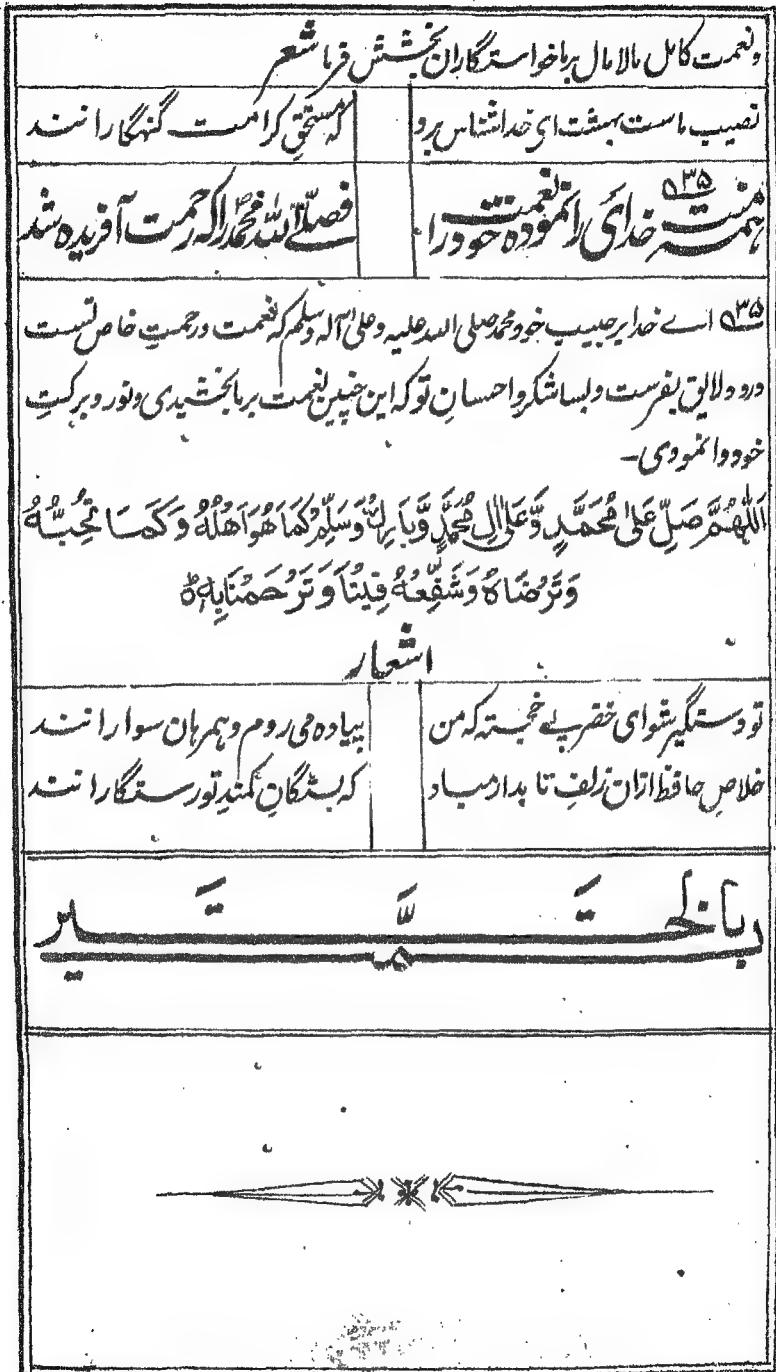 ونعمت کامل مالامال بر ما خواستگاران بخشش فرما شعر
نصیب ماست بهشت ای خداشناس برو که مستحق کرامت گنهگارانند
۵۳۵ همه منت خدای را نموده نعمت خود را فصلی الله محمد را که رحمت آفریده شد
۵۳۵ اے خدا بر حبیب خود محمد صلی الله علیه وعلی آله وسلم که نعمت ورحمتِ خاص تست
درود لایق بفرست وبسا شکر واحسانِ تو که این چنین نعمت بر ما بخشیدی ونور وبرکتِ
خود وانمودی۔
اَللّٰهُمَّ صَلِّ عَلٰى مُحَمَّدٍ وَّعَلٰى اٰلِ مُحَمَّدٍ وَّبَارِكْ وَسَلِّمْ كَمَا هُوَ اَهْلُهٗ وَكَمَا تُحِبُّهٗ
وَتَرْضَاهُ وَشَفِّعْهُ فِيْنَا وَتَرْحَمْنَا بِهٖ ط
اشعار
تو دستگیر شو ای خضر پے خجسته که من پیاده می روم وهمرهان سوارانند
خلاصِ حافظ ازان زلفِ تابدار مباد که بستگانِ کمندِ تو رستگارانند
تمم بالخیر